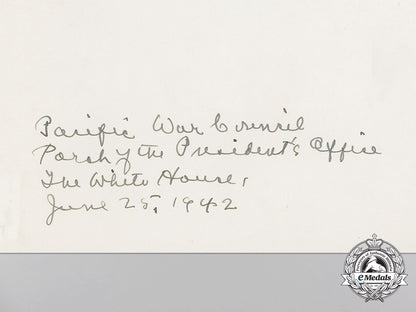 Pacific War Council
Porch of the President's Office
The White House,
June 25, 1942
eMedals